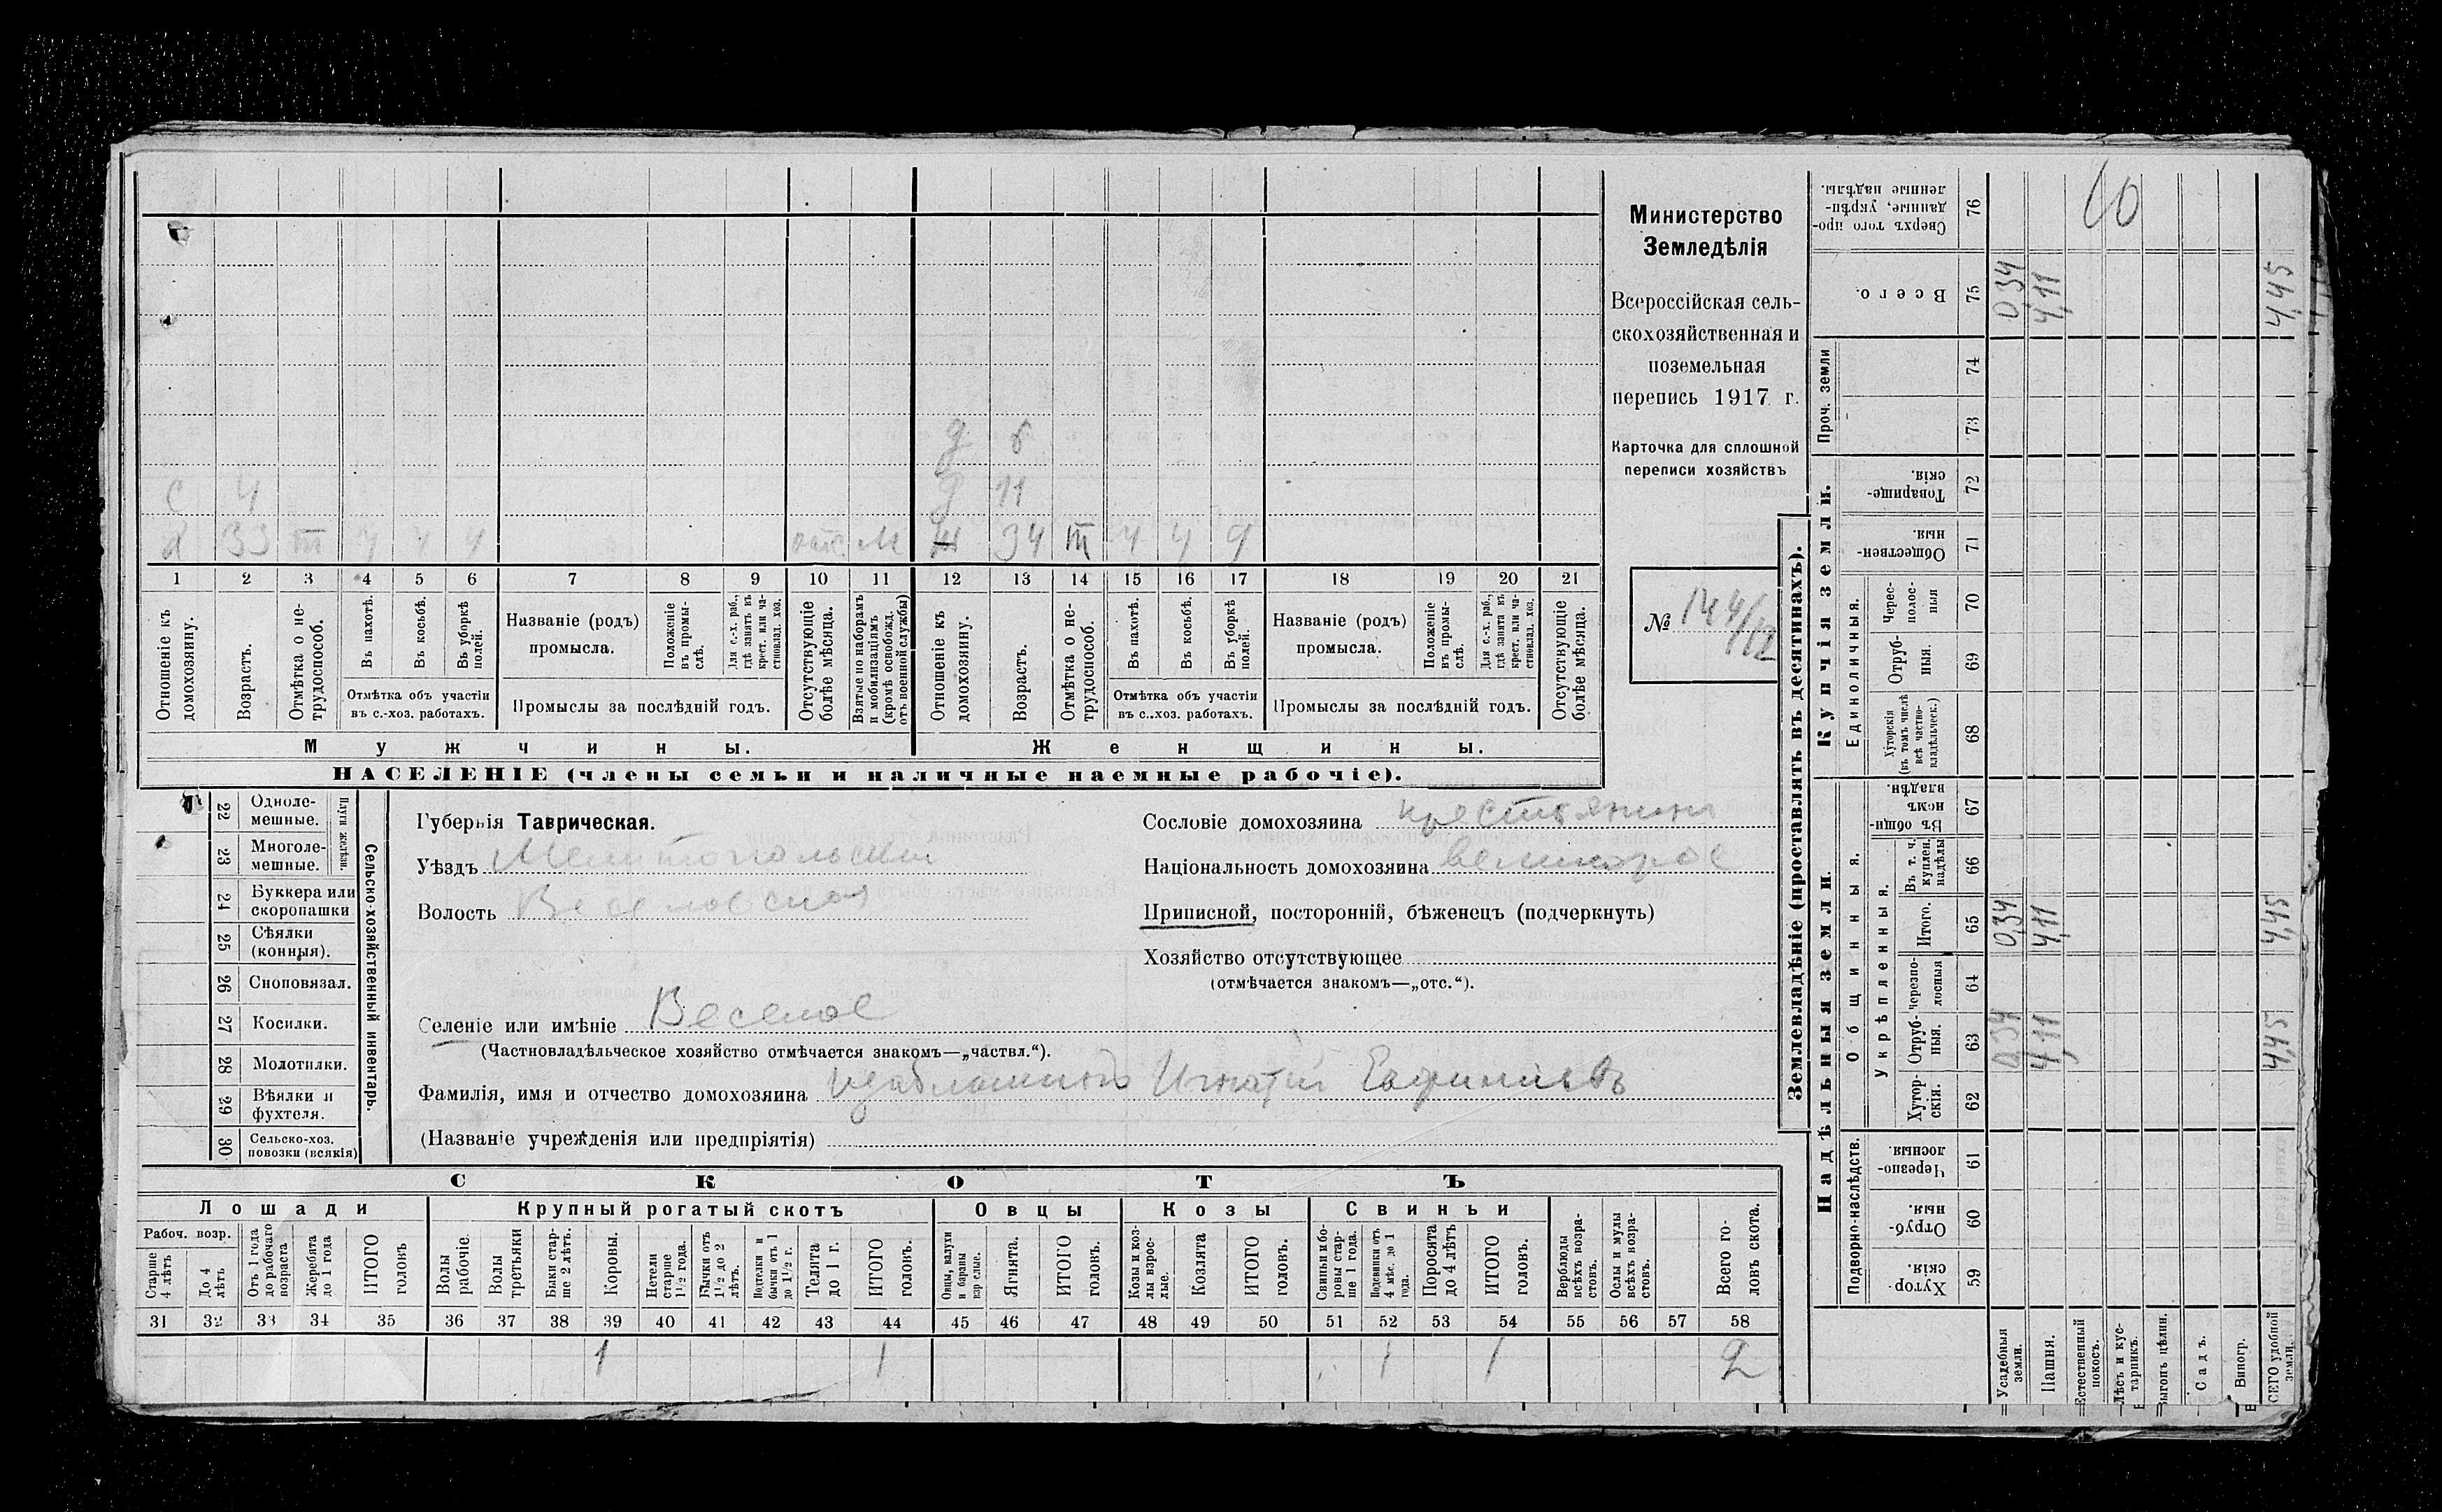 д 6
с 4 д 11
д 33 III ч ч ч отс м ж 34 III ч ч ч
1 2 3 4 5 6 7 8 9 10 11 12 13 14 15 16 17 18 19 20 21
Отношеніе къ домохозяину.
Возрастъ.
Отмѣтка о не-
трудоспособ.
Въ пахотѣ.
Въ косьбѣ.
Въ уборкѣ
полей.
Отмѣтка объ участіи
въ с.-хоз. работахъ.
Названіе (родъ)
промысла.
Положеніе
въ промы-
слѣ.
Для с.-х. раб.,
гдѣ занятъ въ
крест. или ча-
стновлад. хоз.
Промыслы за послѣдній годъ.
Отсутствующіе
болѣе мѣсяца.
Взятые по наборамъ
и мобилизаціямъ
(кромѣ освобожд.
отъ военной службы)
Отношеніе къ
домохозяину.
Возрастъ.
Отмѣтка о не-
трудоспособ.
Въ пахотѣ.
Въ косьбѣ.
Въ уборкѣ
полей.
Отмѣтка объ участіи
въ с.-хоз. работахъ.
Названіе (родъ)
промысла.
Положеніе
въ промы-
слѣ.
Для с.-х. раб.,
гдѣ занята въ
крест. или ча-
стновлад. хоз.
Промыслы за послѣдній годъ.
Отсутствующіе
болѣе мѣсяца.
Мужчины. Женщины.
НАСЕЛЕНІЕ (члены семьи и наличные наемные рабочіе).
Министерство
Земледѣлія
Всероссійская сель-
скохозяйственная и
поземельная
перепись 1917 г.
Карточка для сплошной
переписи хозяйствъ
№ 144/12
Сельско-хозяйственный инвентарь.
Плуги желѣзн.
22 Одноле-
мешные.
23 Многоле-
мешные.
24 Буккера или
скоропашки
25 Сѣялки
(конныя).
26 Сноповязал.
27 Косилки.
28 Молотилки.
29 Вѣялки и
фухтеля.
30 Сельско-хоз.
повозки (всякія)
Губернія Таврическая.
Уѣздъ Мелитопольский
Волость Веселовская
Селеніе или имѣніе Веселое
(Частновладѣльческое хозяйство отмѣчается знакомъ—„частвл.“).
Фамилія, имя и отчество домохозяина Игнатій
(Названіе учрежденія или предпріятія)
Сословіе домохозяина крестьянинъ
Національность домохозяина великорос
Приписной, посторонній, бѣженецъ (подчеркнуть)
Хозяйство отсутствующее
(отмѣчается знакомъ—„отс.“).
СКОТЪ
Лошади Крупный рогатый скотъ Овцы Козы Свиньи
Рабоч. возр.
Старше
4 лѣтъ
До 4
лѣтъ
Отъ 1 года
до рабочаго
возраста
Жеребята
до 1 года
ИТОГО
головъ
Волы
рабочіе.
Волы
третьяки
Быки стар-
ше 2 лѣтъ.
Коровы.
Нетели
старше
1½ года.
Бычки отъ
1½ до 2
лѣтъ.
Подтелки и
бычки отъ 1
до 1½ г.
Телята
до 1 г.
ИТОГО
головъ.
Овцы, валухи
и бараны
взрослые.
Ягнята.
ИТОГО
головъ.
Козы и коз-
лы взрос-
лые.
Козлята
ИТОГО
головъ.
Свиньи и бо-
ровы стар-
ше 1 года.
Подсвинки отъ
4 мѣс. до 1
года.
Поросята
до 4 лѣтъ
ИТОГО
головъ.
Верблюды
всѣхъ возра-
стовъ.
Ослы и мулы
всѣхъ возра-
стовъ.
Всего го-
ловъ скота.
31 32 33 34 35 36 37 38 39 40 41 42 43 44 45 46 47 48 49 50 51 52 53 54 55 56 57 58
1 1 1 1 2
Землевладѣніе (проставлять въ десятинахъ).
Купчія земли.
Надѣльныя земли.
Проч. земли
Единоличныя.
Общинныя.
Укрѣпленныя.
Подворно-наслѣдств.
Сверхъ того про-
данные, укрѣп-
ленные надѣлы. 76 10
Всего. 75 0,34 4,11 4,45
74
73
Товарище-
скія. 72
Обществен-
ныя. 71
Черес-
полос-
ныя 70
Отруб-
ныя. 69
Хуторскія
(въ томъ числѣ
всѣ частно-
владѣльческ.) 68
Въ общин-
номъ
владѣн. 67
Въ т. ч.
куплен.
надѣлы 66
Итого. 65 0,34 4,11 4,45
Черезпо-
лосныя 64
Отруб-
ныя. 63 0,34 4,11 4,45
Хутор-
скія. 62
Черезпо-
лосныя. 61
Отруб-
ныя. 60
Хутор-
скія. 59
Усадебныя
земли.
Пашня.
Естественный
покосъ.
Лѣсъ и кус-
тарникъ.
Выгонъ цѣлин.
Садъ.
Виногр.
ВСЕГО удобной
земли.